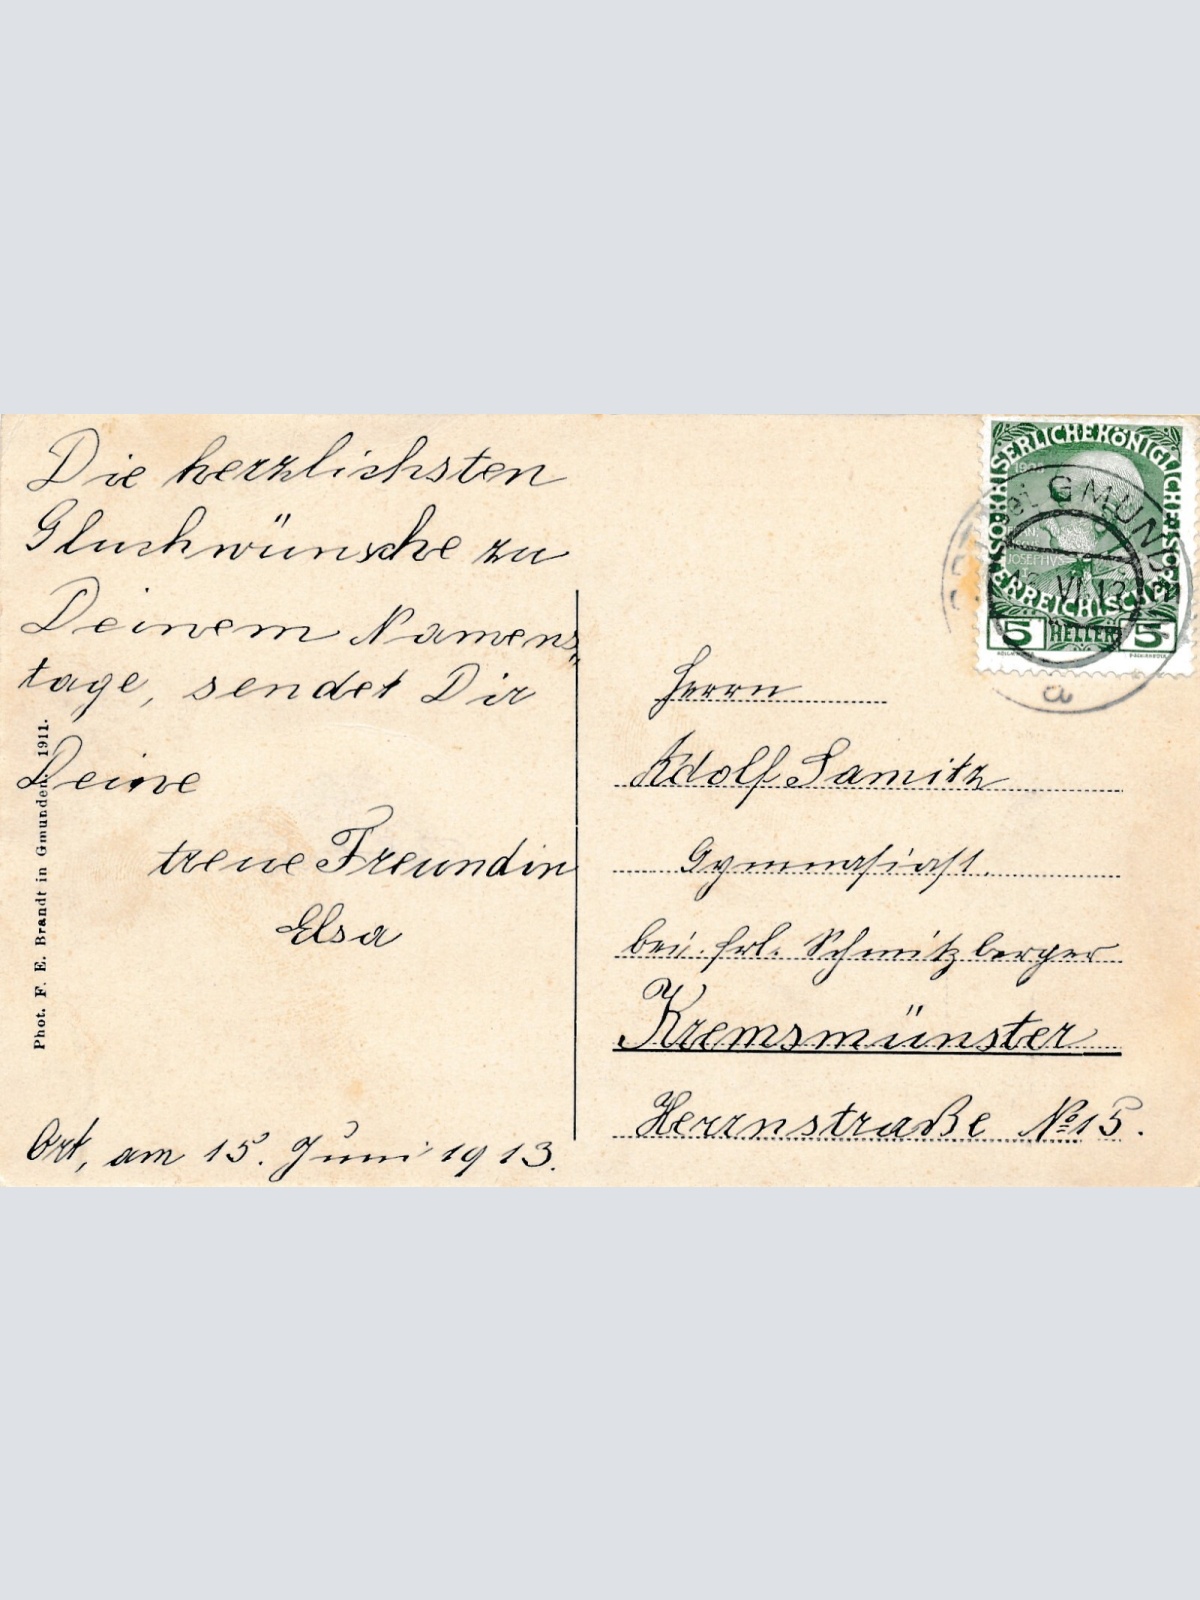 Die herzlichsten
Glückwünsche zu
Deinem Namens-
tage, sendet Dir
Deine
treue Freundin
Elsa
Ort, am 15. Juni 1913.
Phot. F. E. Brandt in Gmunden. 1911.
Herrn
Adolf Samitz
Gymnasiast.
bei Frl. Schmitzberger
Kremsmünster
Herrnstraße No 15.
KAISERLICHE KÖNIGLICHE ÖSTERREICHISCHE POST
1908
5 HELLER 5
bei GMUNDEN
VI.13
a